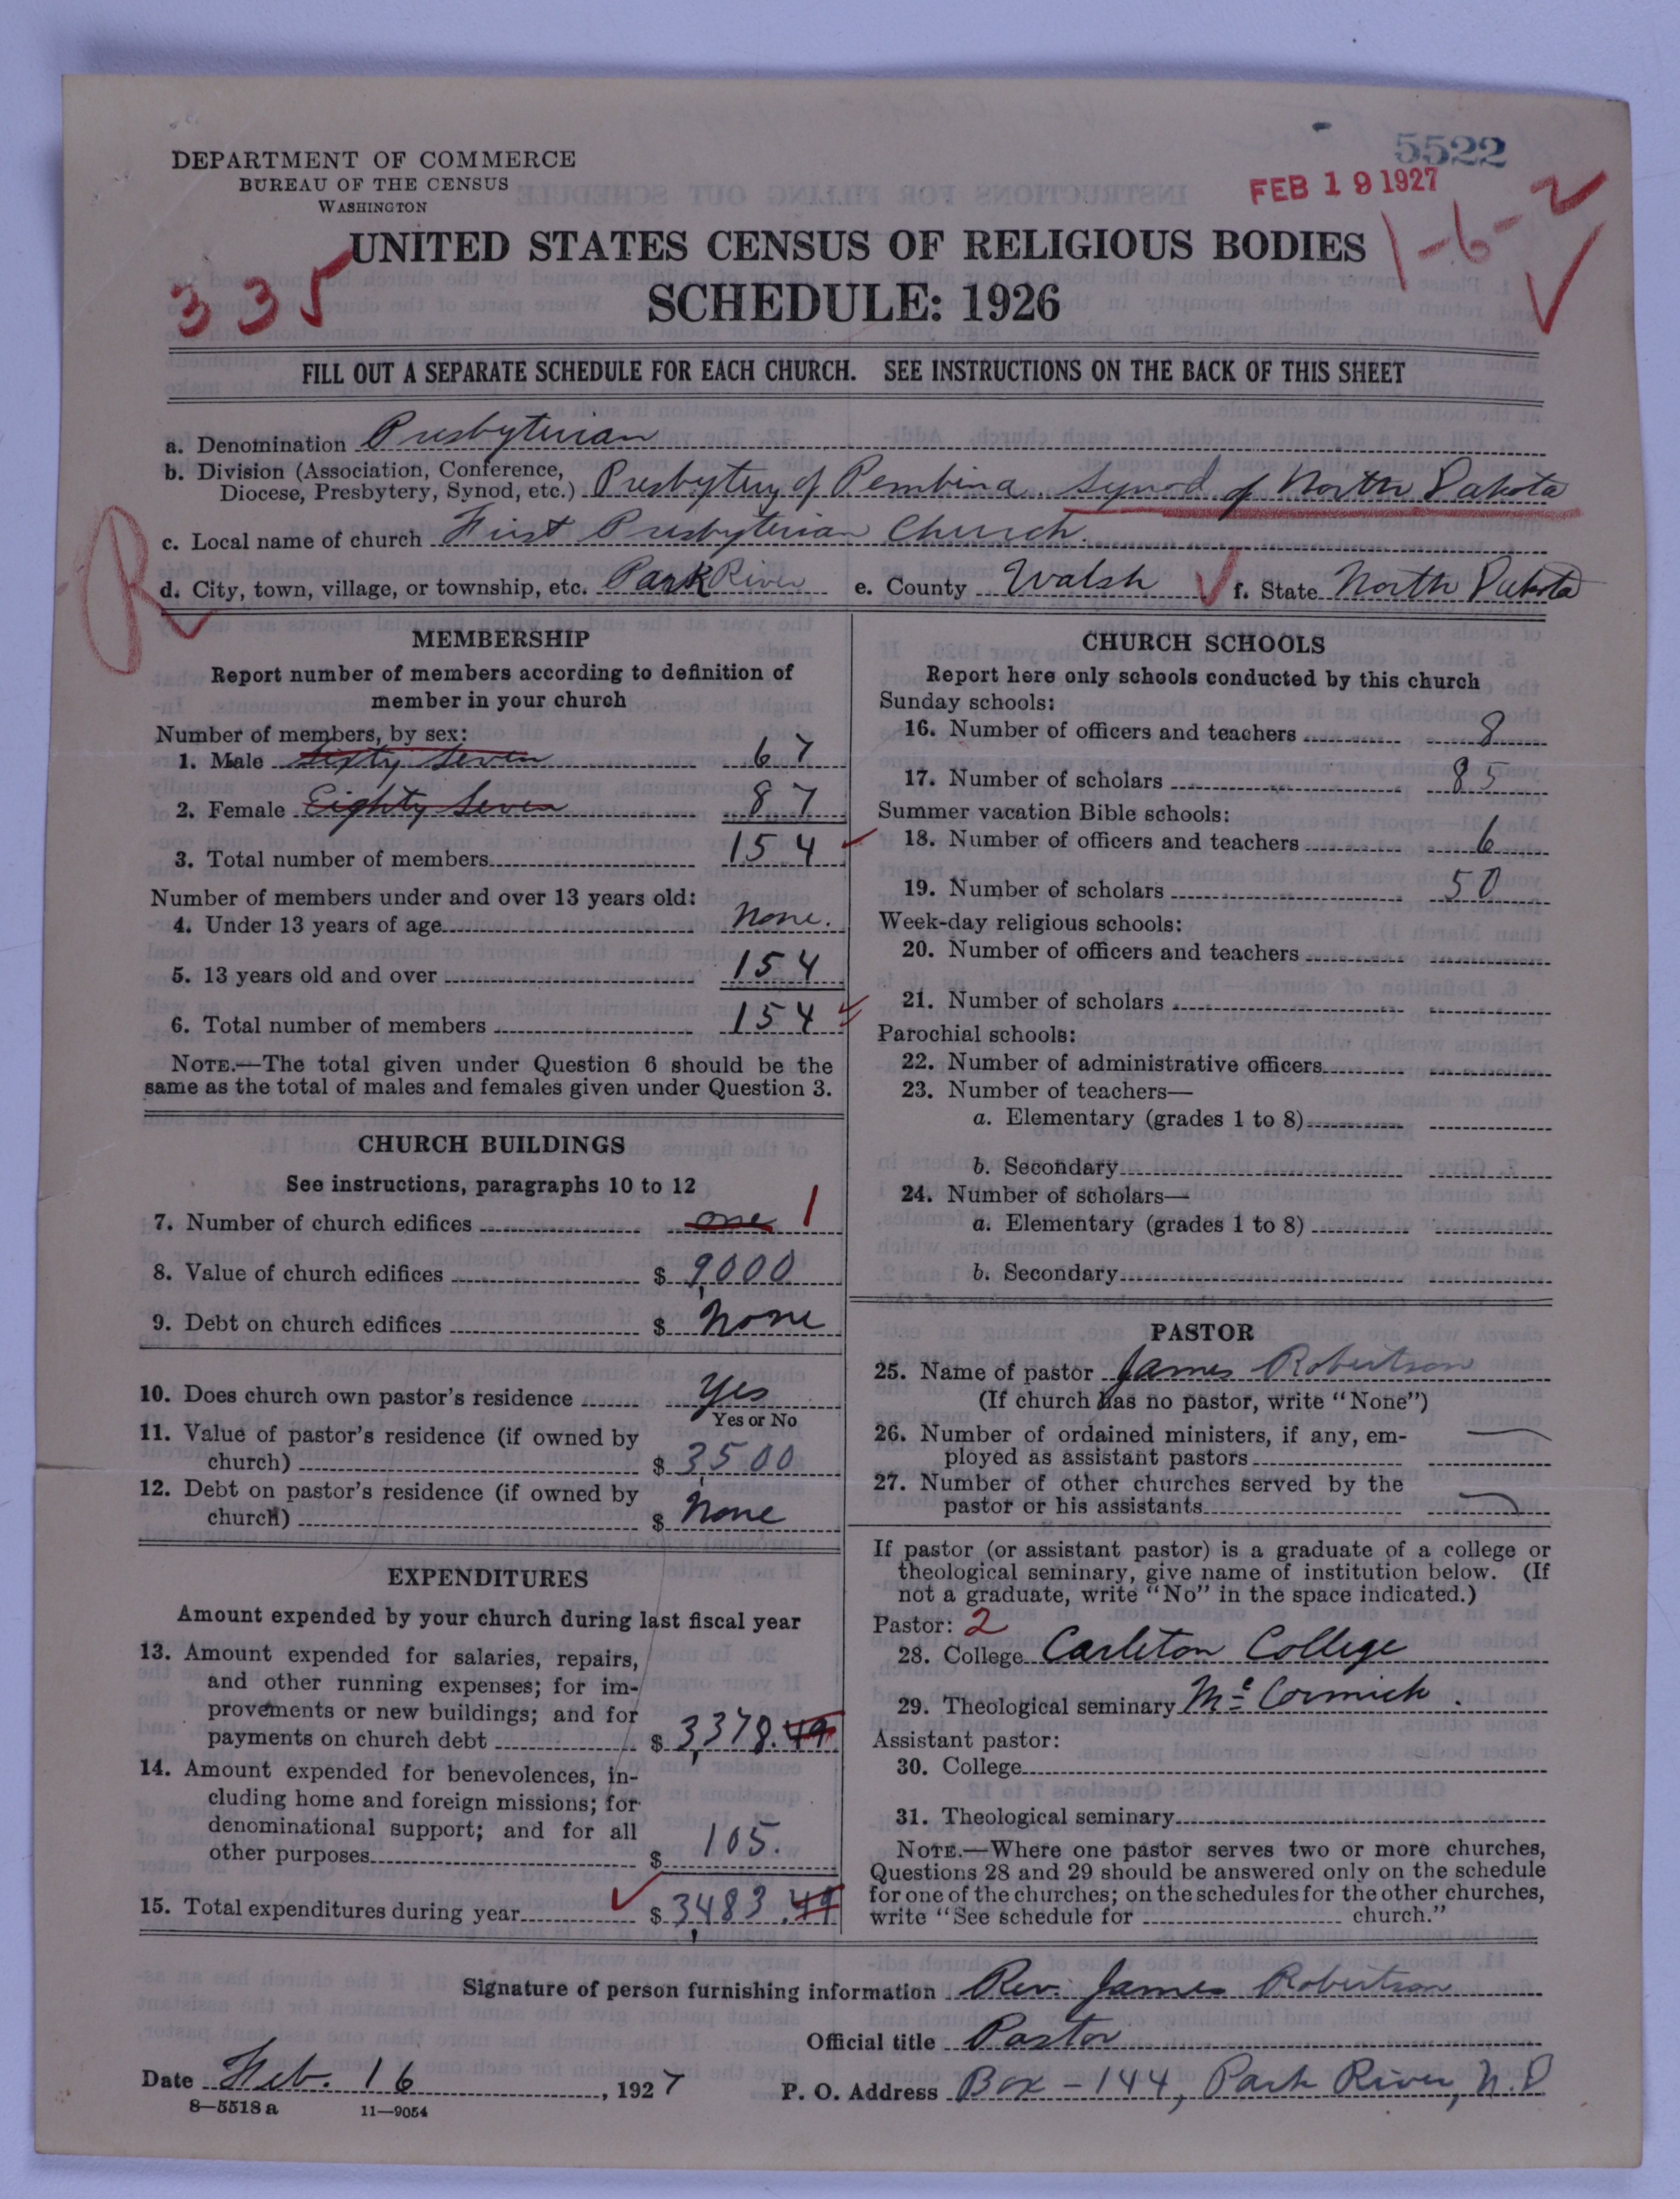 5522
FEB 19 1927
DEPARTMENT OF COMMERCE
BUREAU OF THE CENSUS
WASHINGTON
1-6-2
335
UNITED STATES CENSUS OF RELIGIOUS BODIES
SCHEDULE: 1926
FILL OUT A SEPARATE SCHEDULE FOR EACH CHURCH. SEE INSTRUCTIONS ON THE BACK OF THIS SHEET
a. Denomination Presbyterian
b. Division (Association, Conference,
Diocese, Presbytery, Synod, etc.) Presbytery of Pembina. Synod of North Dakota
c. Local name of church First Presbyterian Church.
R
d. City, town, village, or township, etc. Park River e. County Walsh f. State North Dakota
MEMBERSHIP
Report number of members according to definition of
member in your church
Number of members, by sex:
1. Male Sixty Seven 67
2. Female Eighty Seven 87
3. Total number of members 154
Number of members under and over 13 years old:
4. Under 13 years of age none.
5. 13 years old and over 154
6. Total number of members 154
NOTE.—The total given under Question 6 should be the
same as the total of males and females given under Question 3.
CHURCH BUILDINGS
See instructions, paragraphs 10 to 12
7. Number of church edifices one 1
8. Value of church edifices $ 9,000
9. Debt on church edifices $ None
10. Does church own pastor's residence Yes
Yes or No
11. Value of pastor's residence (if owned by
church) $ 3,500
12. Debt on pastor's residence (if owned by
church) $ None
EXPENDITURES
Amount expended by your church during last fiscal year
13. Amount expended for salaries, repairs,
and other running expenses; for im-
provements or new buildings; and for
payments on church debt $ 3,378.49
14. Amount expended for benevolences, in-
cluding home and foreign missions; for
denominational support; and for all
other purposes $ 105.
15. Total expenditures during year $ 3,483.49
CHURCH SCHOOLS
Report here only schools conducted by this church
Sunday schools:
16. Number of officers and teachers 8
17. Number of scholars 85
Summer vacation Bible schools:
18. Number of officers and teachers 6
19. Number of scholars 50
Week-day religious schools:
20. Number of officers and teachers
21. Number of scholars
Parochial schools:
22. Number of administrative officers
23. Number of teachers—
a. Elementary (grades 1 to 8)
b. Secondary
24. Number of scholars—
a. Elementary (grades 1 to 8)
b. Secondary
PASTOR
25. Name of pastor James Robertson
(If church has no pastor, write "None")
26. Number of ordained ministers, if any, em-
ployed as assistant pastors —
27. Number of other churches served by the
pastor or his assistants —
If pastor (or assistant pastor) is a graduate of a college or
theological seminary, give name of institution below. (If
not a graduate, write "No" in the space indicated.)
Pastor: 2
28. College Carleton College
29. Theological seminary McCormick.
Assistant pastor:
30. College
31. Theological seminary
NOTE.—Where one pastor serves two or more churches,
Questions 28 and 29 should be answered only on the schedule
for one of the churches; on the schedules for the other churches,
write "See schedule for church."
Signature of person furnishing information Rev. James Robertson
Official title Pastor
Date Feb. 16, 1927 P. O. Address Box - 144, Park River, N.D
8—5518 a 11—9054